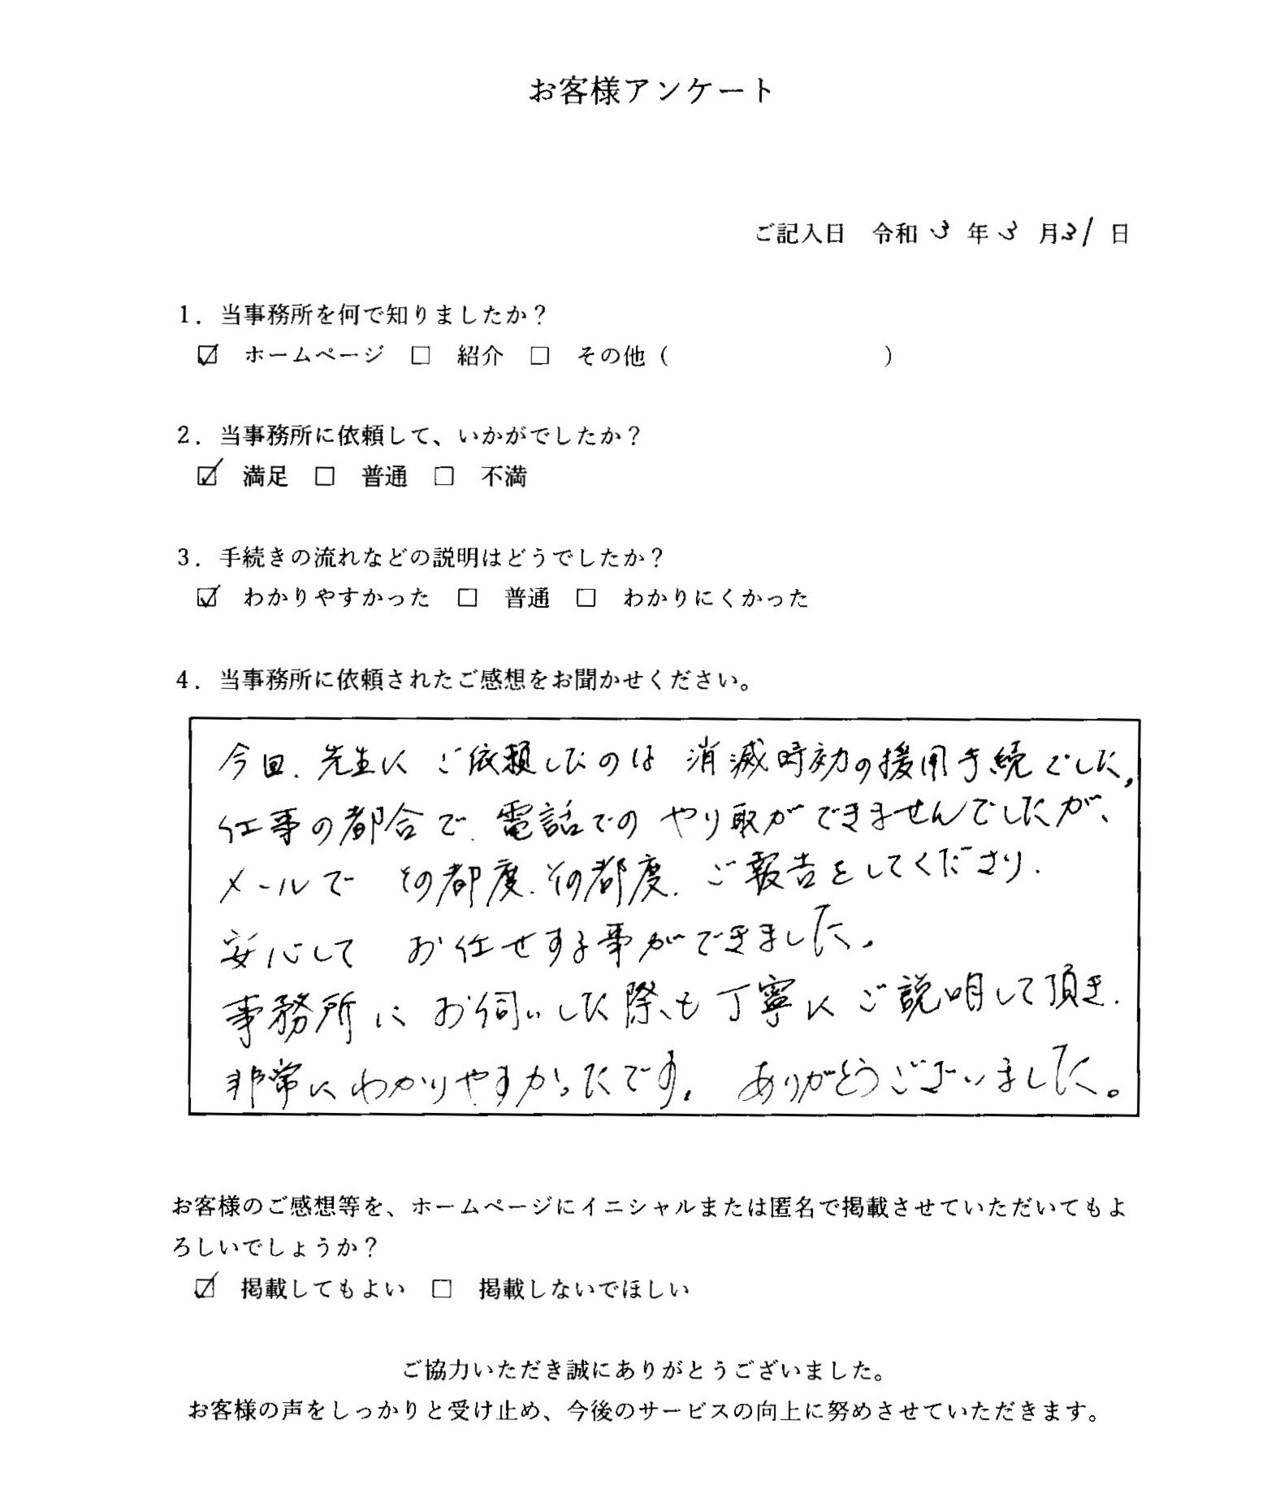 お客様アンケート
ご記入日 令和 3 年 3 月 31 日
1．当事務所を何で知りましたか？
☑ ホームページ □ 紹介 □ その他（ ）
2．当事務所に依頼して、いかがでしたか？
☑ 満足 □ 普通 □ 不満
3．手続きの流れなどの説明はどうでしたか？
☑ わかりやすかった □ 普通 □ わかりにくかった
4．当事務所に依頼されたご感想をお聞かせください。
今回、先生に ご依頼したのは 消滅時効の援用手続でした。
仕事の都合で、電話での やり取ができませんでしたが、
メールで その都度、その都度、ご報告をしてくださり、
安心して お任せする事ができました。
事務所に お伺いした際も 丁寧に ご説明して頂き、
非常に わかりやすかったです。 ありがとうございました。
お客様のご感想等を、ホームページにイニシャルまたは匿名で掲載させていただいてもよ
ろしいでしょうか？
☑ 掲載してもよい □ 掲載しないでほしい
ご協力いただき誠にありがとうございました。
お客様の声をしっかりと受け止め、今後のサービスの向上に努めさせていただきます。